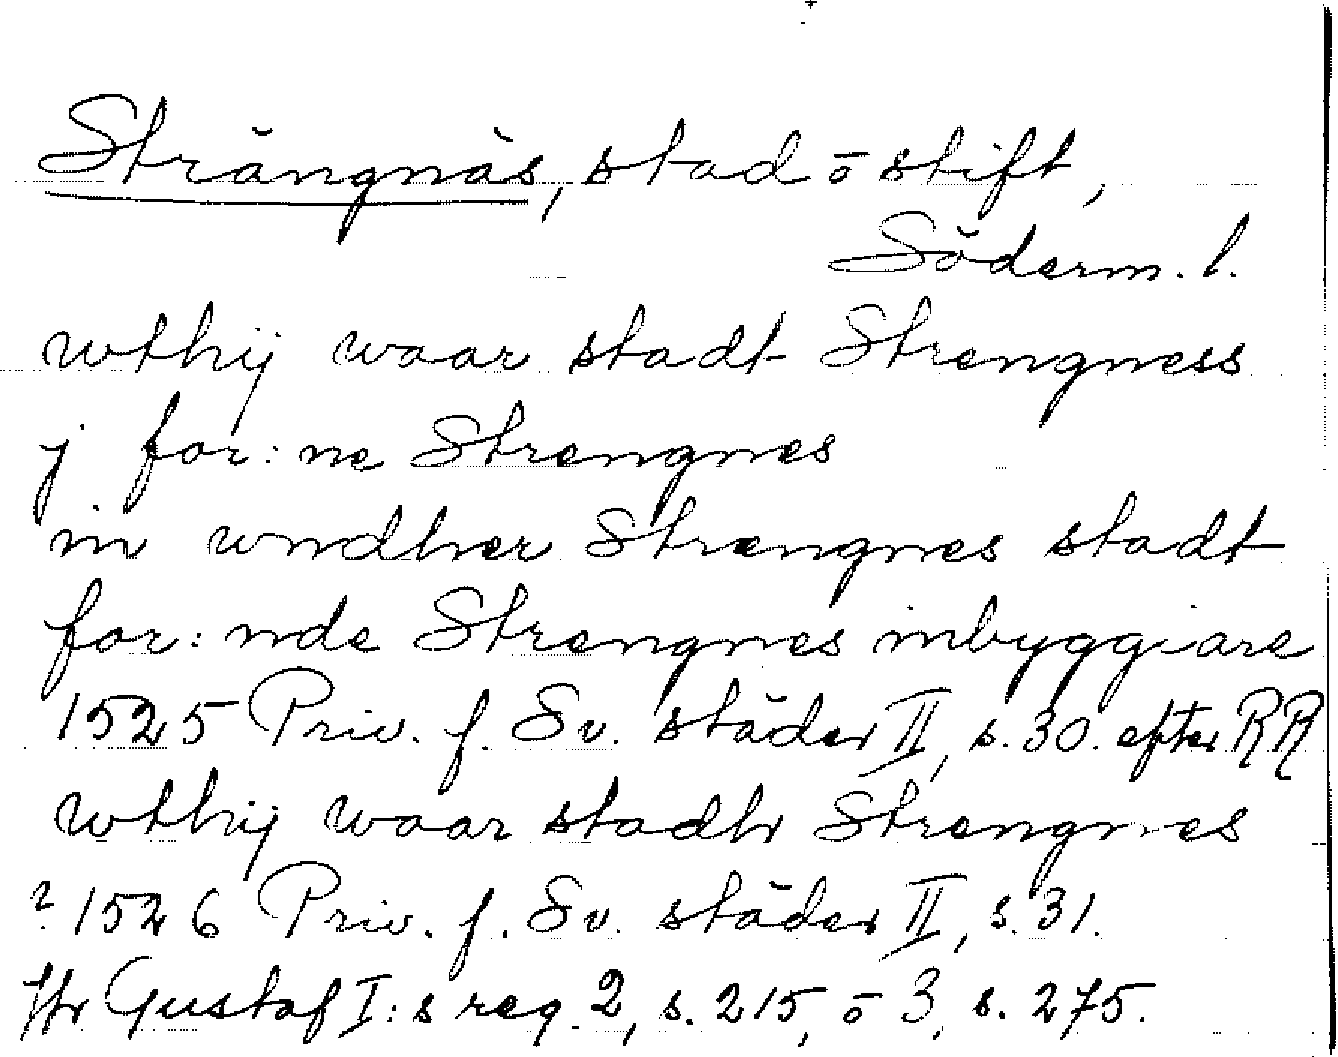 Strängnäs, stad o stift,
Söderm. l.
wthij waar stadt Strengness
j for:ne Strengnes
in wndher Strengnes stadt
for:nde Strengnes inbyggiare
1525 Priv. f. Sv. städer II, s. 30. efter RR
wthij waar stadh Strengnes
? 1526 Priv. f. Sv. städer II, s. 31.
Jfr Gustaf I:s reg. 2, s. 215, o 3, s. 275.